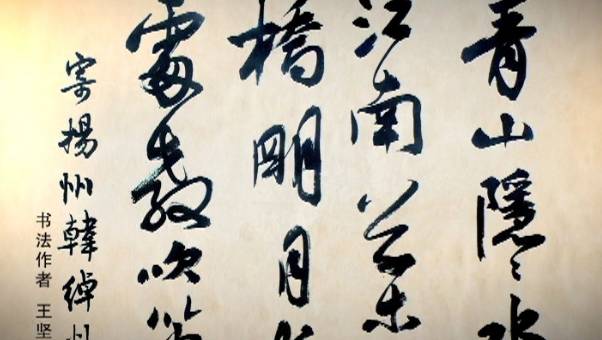 青山隱〻水
江南草木
橋明月
處教吹
寄揚州韓綽
书法作者 王坚